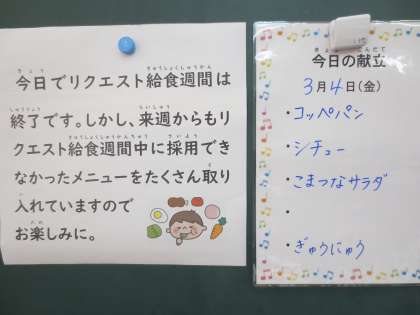 今日でリクエスト給食週間は
終了です。しかし、来週からもリ
クエスト給食週間中に採用でき
なかったメニューをたくさん取り
入れていますので
お楽しみに。
今日の献立
3月4日(金)
・コッペパン
・シチュー
・こまつなサラダ
・
・ぎゅうにゅう